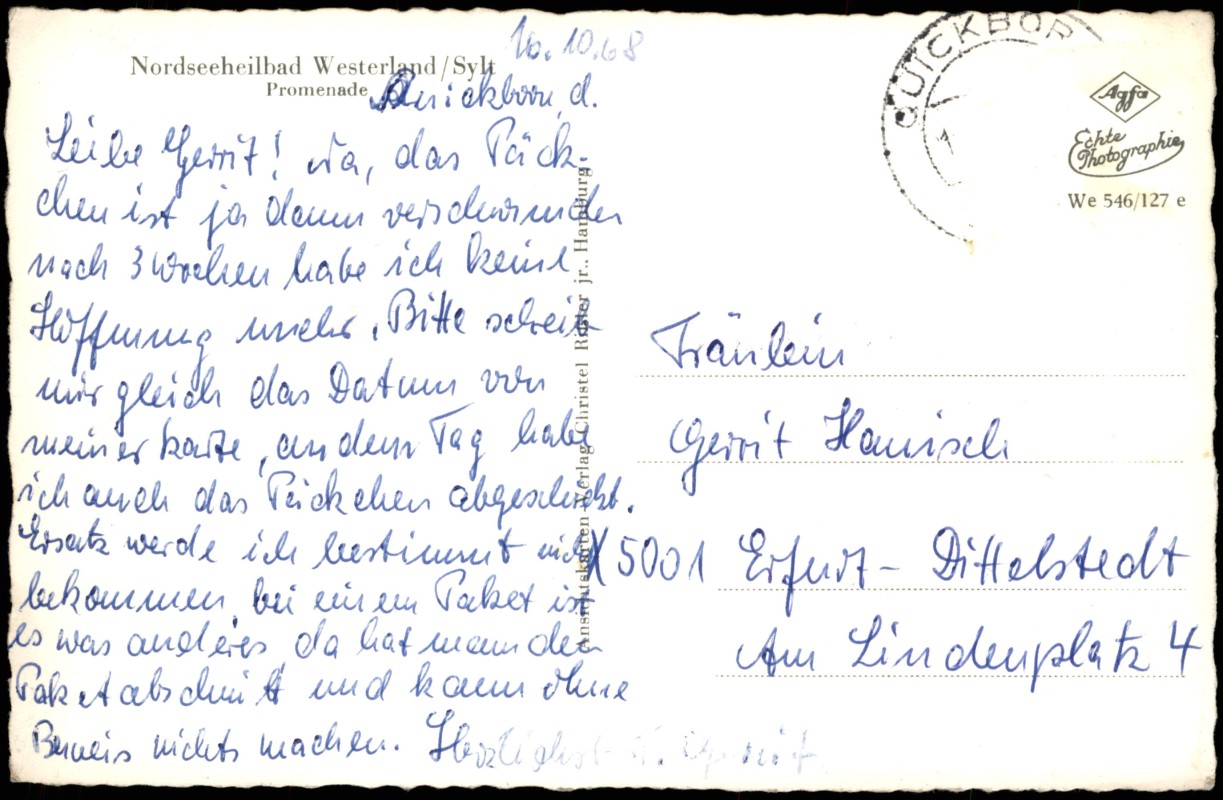 16.10.68
Nordseeheilbad Westerland/Sylt
Promenade
Quickborn, d.
Leibe Gerrit! Na, das Päck-
chen ist ja dann verschwunden
nach 3 Wochen habe ich keine
Hoffnung mehr. Bitte schreib
mir gleich das Datum von
meiner Karte, an dem Tag habe
ich auch das Päckchen abgeschickt.
Ersatz werde ich bestimmt nicht
bekommen, bei einem Paket ist
es was anderes da hat man den
Paketabschnitt und kann ohne
Beweis nichts machen. Herzlichst
Ansichtskarten-Verlag Christel Rüster jr., Hamburg
QUICKBOR
Agfa
Echte
Photographie
We 546/127 e
Fräulein
Gerrit Hanisch
X 5001 Erfurt-Dittelstedt
Am Lindenplatz 4